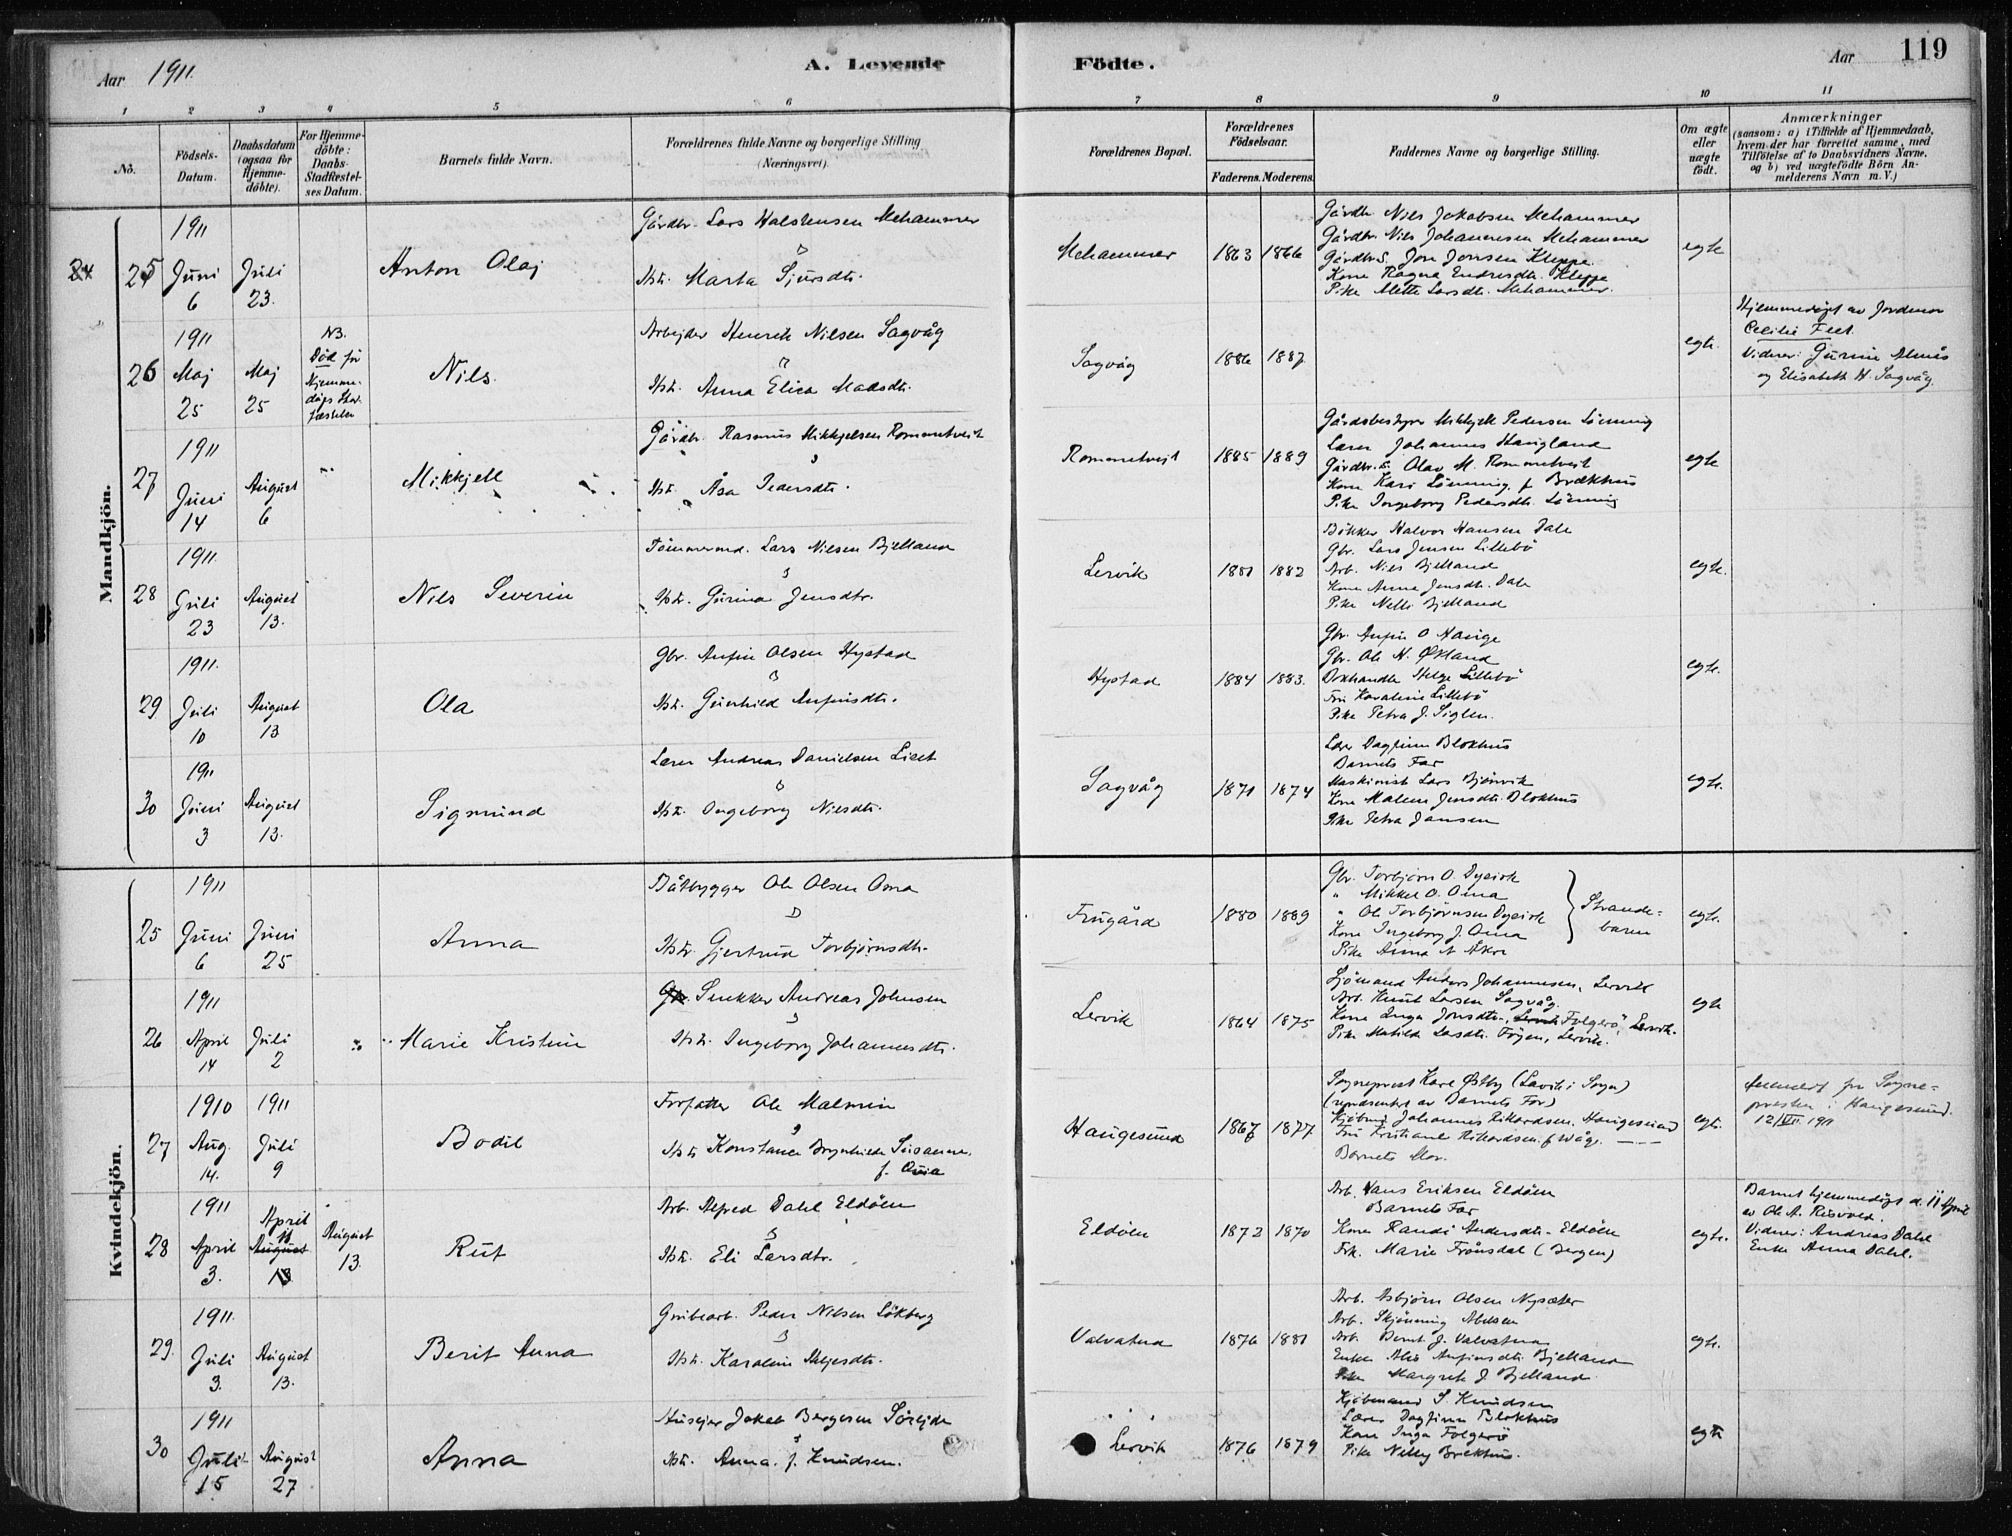 Aar 1911. A. Levende Födte. Aar 119
1 2 3 4 5 6 7 8 9 10 11
No.
Födsels-Datum.
Daabsdatum (ogsaa for Hjemme-döbte).
For Hjemme-döbte: Daabs-Stadfæstel-ses Datum.
Barnets fulde Navn.
Forældrenes fulde Navne og borgerlige Stilling (Næringsvei).
Forældrenes Bopæl.
Forældrenes Födselsaar.
Faderens. Moderens.
Faddernes Navne og borgerlige Stilling.
Om ægte eller uægte födt.
Anmærkninger
(saasom: a) i Tilfælde af Hjemmedaab,
hvem der har forrettet samme, med
Tilföielse af to Daabsvidners Navne,
og b) ved uægtefödte Börn An-
melderens Navn m. V.)
Mandkjön.
25 1911 Juni 6 Juli 23.
Anton Olaj
Gårdbr. Lars Halstensen Mehammer
Hstr. Marta Sjursdtr.
Mehammer 1863 1866
Gårdbr. Nils Jakobsen Mehammer
Gårdbr. Nils Johannesen Mehammer
Gårdbr.s. Jon Jonsen Kleppe
Kone Ragna Endresdtr. Kleppe
Pike Mette Larsdtr. Mehammer.
egte
26 1911 Maj 25 Maj 25
NB. Død før Hjemme-
Nils.
Arbejder Henrik Nilsen Sagvåg
Hstr. Anna Elisa Madsdtr.
Sagvåg 1886 1887
egte.
Hjemmedøpt av Jordmor
Cecilie Feet.
Vidner: Gurine Almås
og Elisabeth H. Sagvåg.
27 1911 Juni 14 August 6
Mikkjell
Gårdbr. Rasmus Mikkjelsen Rommetveit
Hstr. Åsa Pedersdtr.
Rommetvejt 1885 1889
Gårdsbestyrer Mikkjell Pedersen Lønning
Lærer Johannes Haugland
Gårdbr.s. Olav M. Rommetvejt
Kone Kari Lønning f. Brækhus
Pike Ingeborg Pedersdtr. Lønning
egte
28 1911 Juli 23 August 13.
Nils Severin
Tømmermd. Lars Nilsen Bjelland
Hstr. Gurina Jensdtr.
Lervik 1881 1882
Bøkker Halvor Hansen Dale
Gbr. Lars Jensen Lillebø
Arb. Nils Bjelland
Kone Anne Jensdtr. Dale
Pike Nelli Bjelland
egte.
29 1911. Juli 10 August 13
Ola
Gbr. Anfin Olsen Hystad
Hstr. Gunhild Anfinsdtr.
Hystad 1884 1883.
Gbr. Anfin O Hauge
Gbr. Ole N. Økland
Bokhandler Helge Lillebø
Fru Karoline Lillebø
Pike Petra J. Siglen.
egte.
30 1911 Juni 3 August 13.
Sigmund
Lærer Andreas Danielsen Liset
Hstr. Ingeborg Nilsdtr.
Sagvåg 1871 1874
Lærer Dagfinn Blokhus
Barnets Far
Maskinist Lars Bjønvik
Kone Malene Jensdtr. Blokhus
Pike Petra Jansen
egte.
Kvindekjön.
25 1911 Juni 6 Juni 25
Anna
Båtbygger Ole Olsen Oma
Hstr. Gjertrud Torbjørnsdtr.
Frugård 1880 1889
Gbr. Torbjørn O. Dysvik
" Mikkel O. Oma
" Ole Torbjørnsen Dysvik
Kone Ingeborg J. Oma
Pike Anna A Åkre
Strande-
barm
egte.
26 1911 April 14 Juli 2
Marie Kristine
Snekker Andreas Johnsen
Hstr. Ingeborg Johannesdtr.
Lervik 1864 1875
Sjømand Anders Johannesen, Lervik
Arb. Knut Larsen Sagvåg.
Kone Inga Jonsdtr. Folgerø, Lervik.
Pike Matilde Larsdtr. Føyen, Lervik.
egte
27 1910 Aug. 14. 1911 Juli 9
Bodil
Forfatter Ole Malmin
Hstr. Konstance Brynhilde Susanne
Haugesund 1867 1877
Sogneprest Kare Østby (Lavik i Sogn)
(repræsentert av Barnets Far)
Kjøbmd. Johannes Rikardsen. Haugesund
Fru Kristiane Rikardsen f. Våge. — —
Barnets Mor.
egte.
Anmeldt fra Sogne-
presten i Haugesund.
12/VII 1911
28 1911 April 3. April 11 August 13 August 13.
Rut
Arb. Alfred Dahl Eldøen
Hstr. Eli Larsdtr.
Eldøen 1872 1870
Arb. Hans Eriksen Eldøen
Barnets Far
Kone Randi Andersdtr. Eldøen
Frk. Marie Frønsdal (Bergen)
egte.
Barnet hjemmedøpt d. 11 April
av Ole A. Risvold.
Vidner: Andreas Dahl
Enke Anna Dahl.
29. 1911. Juli 3. August 13.
Berit Anna
Grubearb. Peder Nilsen Løkberg
Hstr. Karoline
Valvatna 1876 1881
Arb. Asbjørn Olsen Nysæter
Arb. Skjønning Abelsen
Arb. Bernt J. Valvatna
Enke Alis Anfinsdtr. Bjelland
Pike Margrete J. Bjelland.
egte.
30 1911 Juli 15 August 27
Anna
Husejer Jakob Bergesen Sørejde
Hstr. Anna f. Knudsen.
Lervik 1876 1879
Kjøbmand S. Knudsen
Lærer Dagfinn Blokhus
Kone Inga Folgerø
Pike Nelly Brekhus.
egte